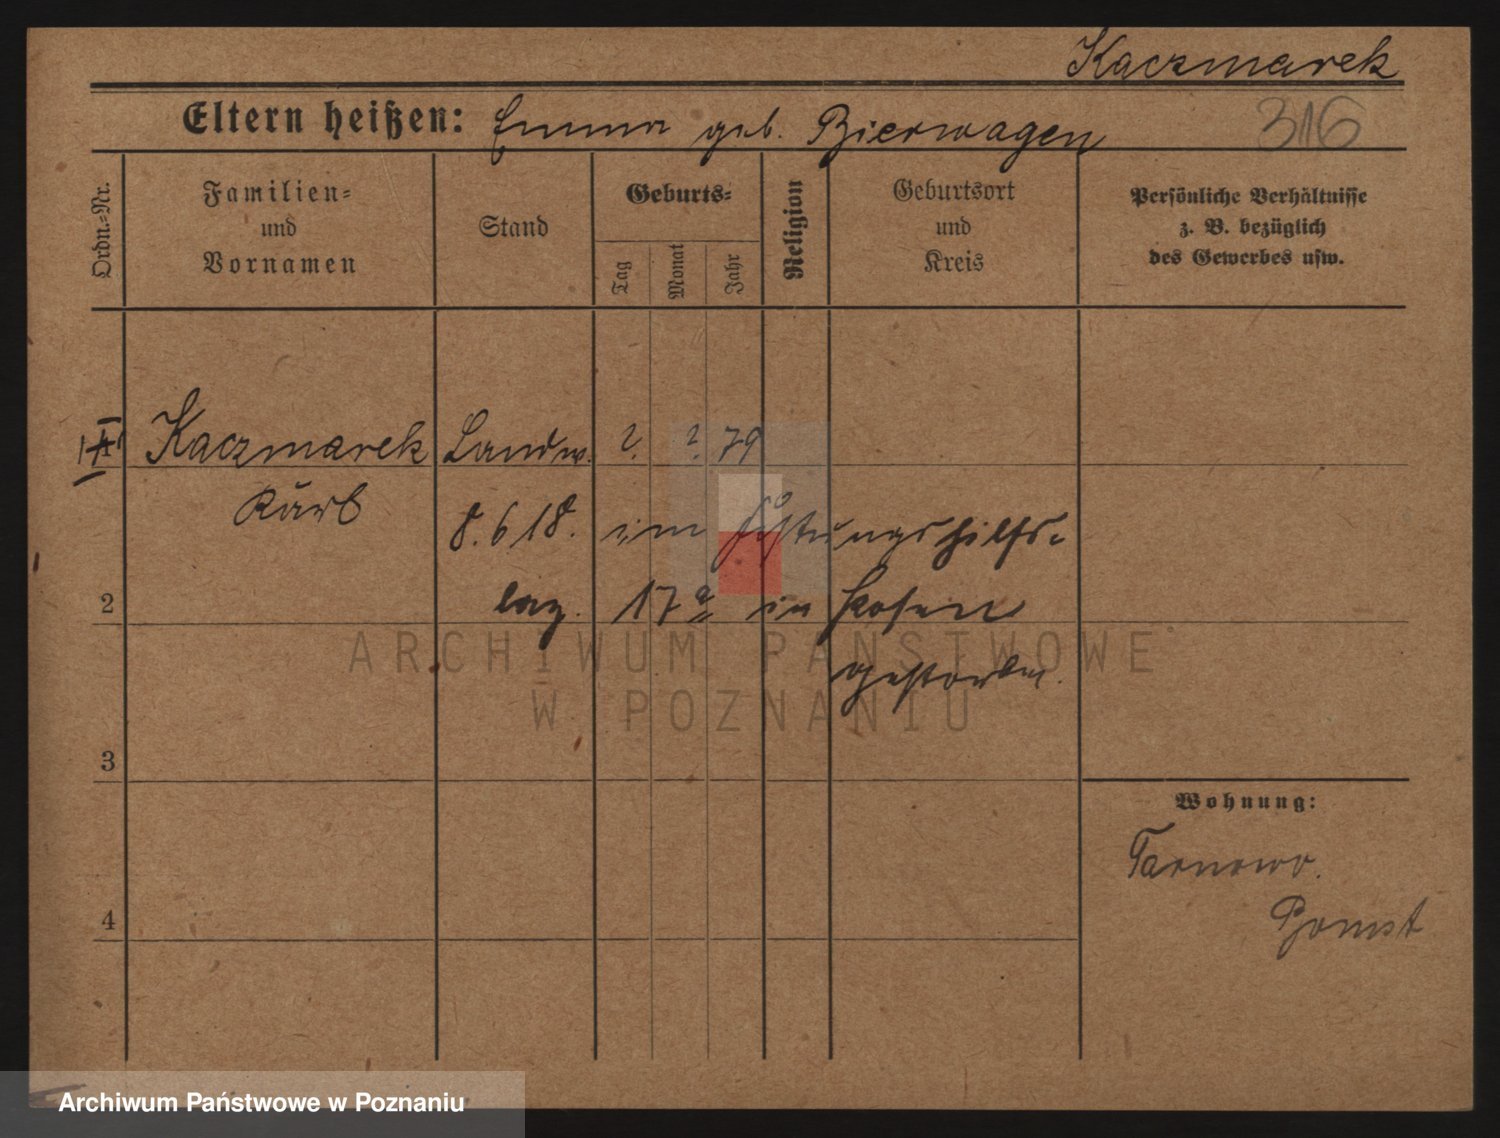 Kaczmarek
Eltern heißen: Emma geb. Bierwagen
316
Ordn.-Nr.
Familien-
und
Vornamen
Stand
Geburts-
Tag
Monat
Jahr
Religion
Geburtsort
und
Kreis
Persönliche Verhältnisse
z. B. bezüglich
des Gewerbes usw.
Kaczmarek Landw. ? ? 79
8.6.18. im Festungshilfs-
2
laz. 17a in Posen
gestorben.
3
4
Wohnung:
Tarnowo.
Bomst
ARCHIWUM PAŃSTWOWE
W POZNANIU
Archiwum Państwowe w Poznaniu